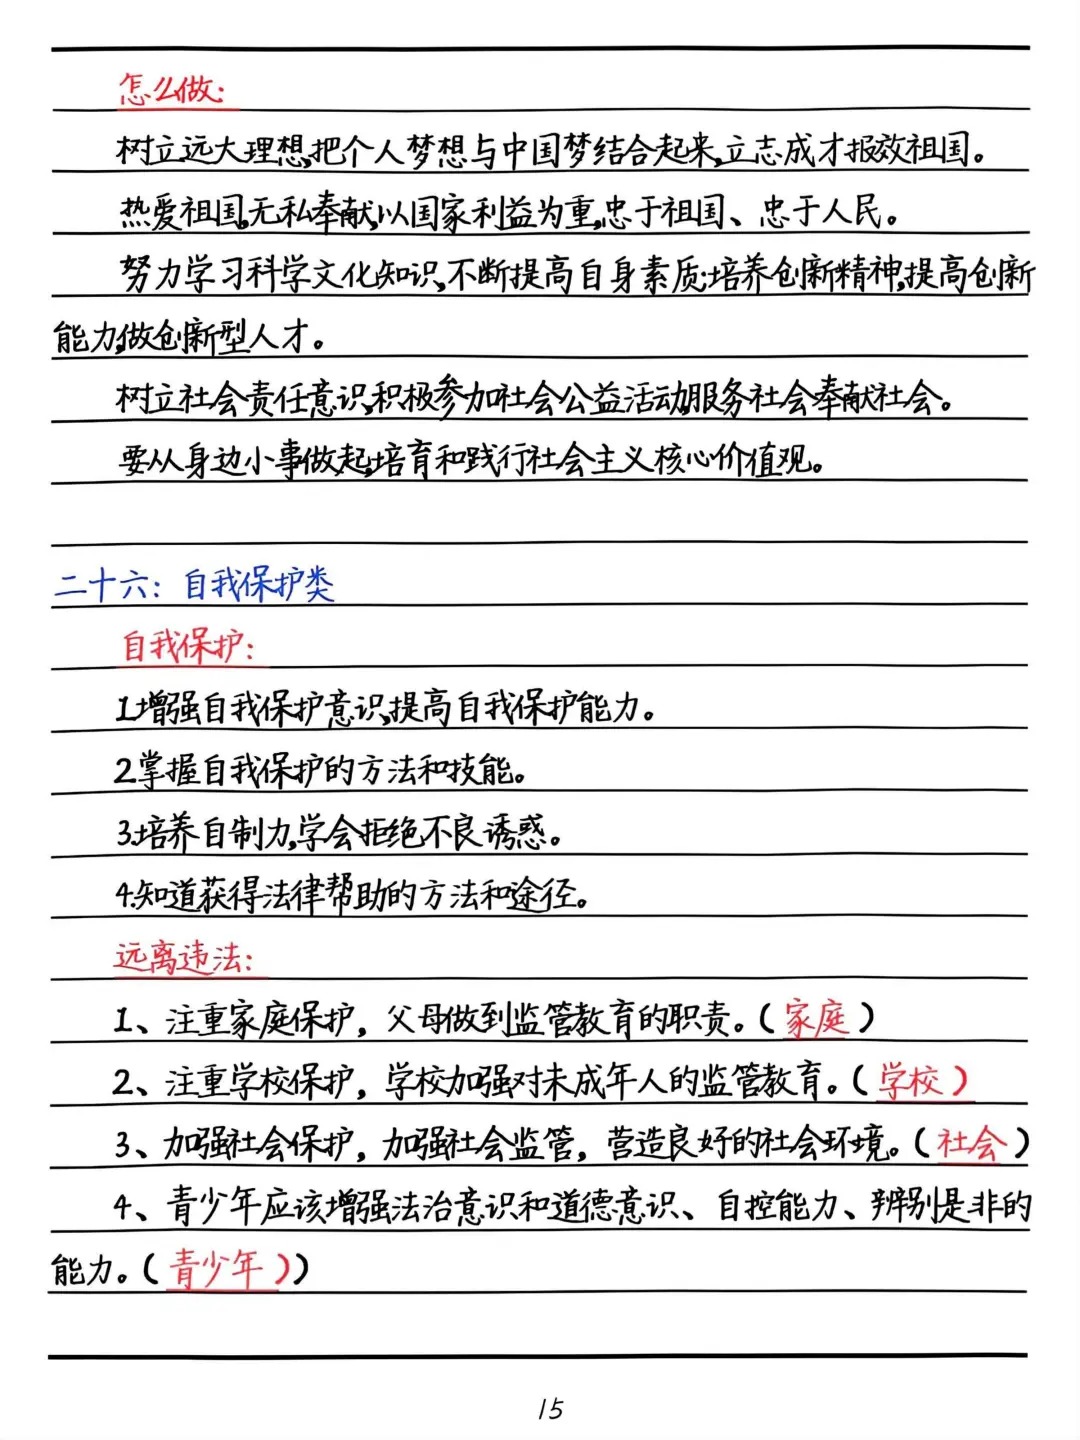 怎么做:
树立远大理想,把个人梦想与中国梦结合起来,立志成才报效祖国。
热爱祖国,无私奉献,以国家利益为重,忠于祖国、忠于人民。
努力学习科学文化知识,不断提高自身素质;培养创新精神,提高创新
能力,做创新型人才。
树立社会责任意识,积极参加社会公益活动,服务社会奉献社会。
要从身边小事做起,培育和践行社会主义核心价值观。
二十六：自我保护类
自我保护：
1.增强自我保护意识,提高自我保护能力。
2.掌握自我保护的方法和技能。
3.培养自制力,学会拒绝不良诱惑。
4.知道获得法律帮助的方法和途径。
远离违法：
1、注重家庭保护，父母做到监管教育的职责。（家庭）
2、注重学校保护，学校加强对未成年人的监管教育。（学校）
3、加强社会保护，加强社会监管，营造良好的社会环境。（社会）
4、青少年应该增强法治意识和道德意识、自控能力、辨别是非的
能力。（青少年））
15